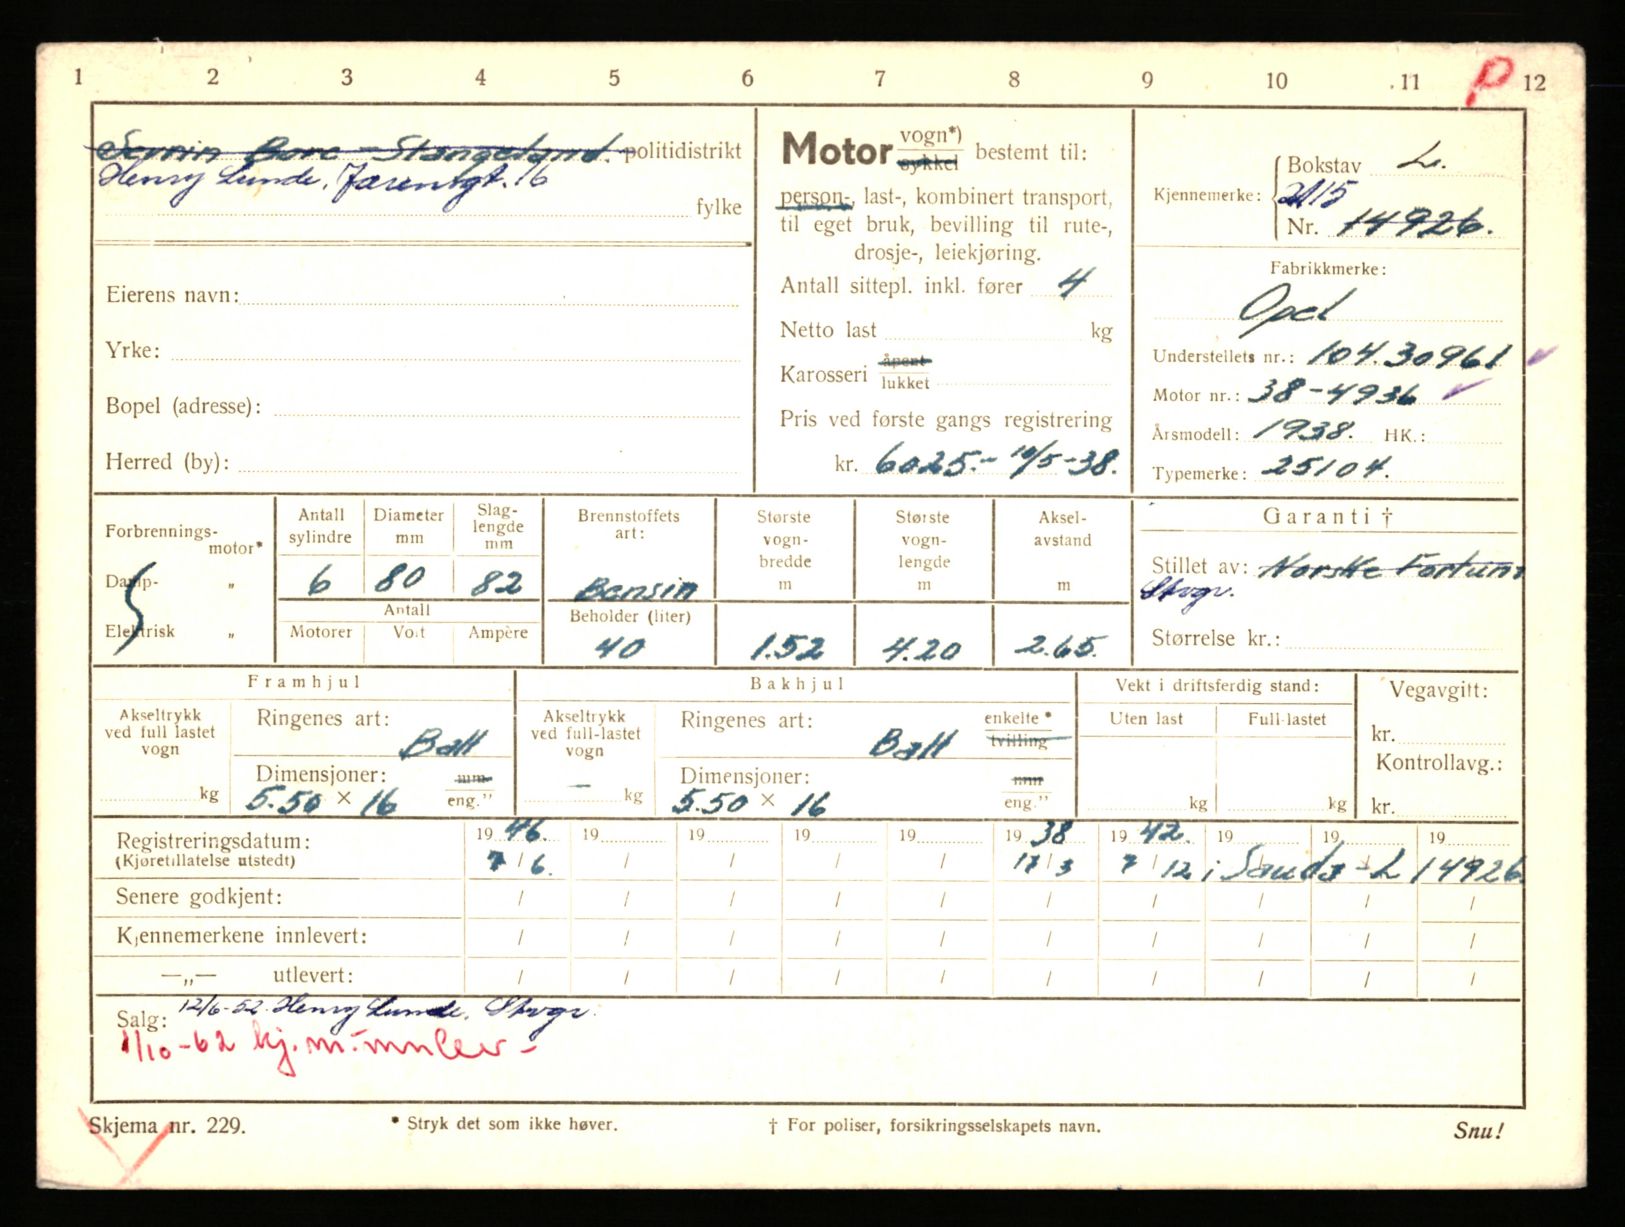 1 2 3 4 5 6 7 8 9 10 11 P 12
Sevrin Bore - Stangeland. politidistrikt
Henry Lunde, Jærenvgt. 16
fylke
Eierens navn:
Yrke:
Bopel (adresse):
Herred (by):
Motor vogn*) sykkel bestemt til:
person-, last-, kombinert transport,
til eget bruk, bevilling til rute-,
drosje-, leiekjøring.
Antall sittepl. inkl. fører 4
Netto last kg
Karosseri åpent lukket
Pris ved første gangs registrering
kr. 6025.- 10/5-38.
Kjennemerke: Bokstav L.
2115
Nr. 14926.
Fabrikkmerke:
Opel
Understellets nr.: 104.30961
Motor nr.: 38-4936
Årsmodell: 1938. HK.:
Typemerke: 25104.
Forbrennings-motor*
Damp- „
Elektrisk „
Antall sylindre
6
Diameter mm
80
Slaglengde mm
82
Antall
Motorer Volt Ampère
Brennstoffets art:
Bensin
Beholder (liter)
40
Største vognbredde m
1.52
Største vognlengde m
4.20
Akselavstand m
2.65.
Garanti †
Stillet av: Norske Fortuna
Stvgr.
Størrelse kr.:
Framhjul
Akseltrykk ved full lastet vogn
kg
Ringenes art:
Ball
Dimensjoner: mm
5.50 × 16 eng."
Bakhjul
Akseltrykk ved full-lastet vogn
— kg
Ringenes art: enkelte * tvilling
Ball
Dimensjoner: mm
5.50 × 16 eng."
Vekt i driftsferdig stand:
Uten last Full-lastet
kg kg
Vegavgift:
kr.
Kontrollavg.:
kr.
Registreringsdatum: 19 46. 19 19 19 19 19 38 19 42. 19 19 19
(Kjøretillatelse utstedt) 7 / 6. / / / / 17 / 3 7 / 12 i Sauda - L 14926.
Senere godkjent: / / / / / / / / / /
Kjennemerkene innlevert: / / / / / / / / / /
—„— utlevert: / / / / / / / / / /
Salg: 12/6-52. Henry Lunde, Stvgr.
1/10-62 kj.m. innlev -
Skjema nr. 229.
* Stryk det som ikke høver.
† For poliser, forsikringsselskapets navn.
Snu!